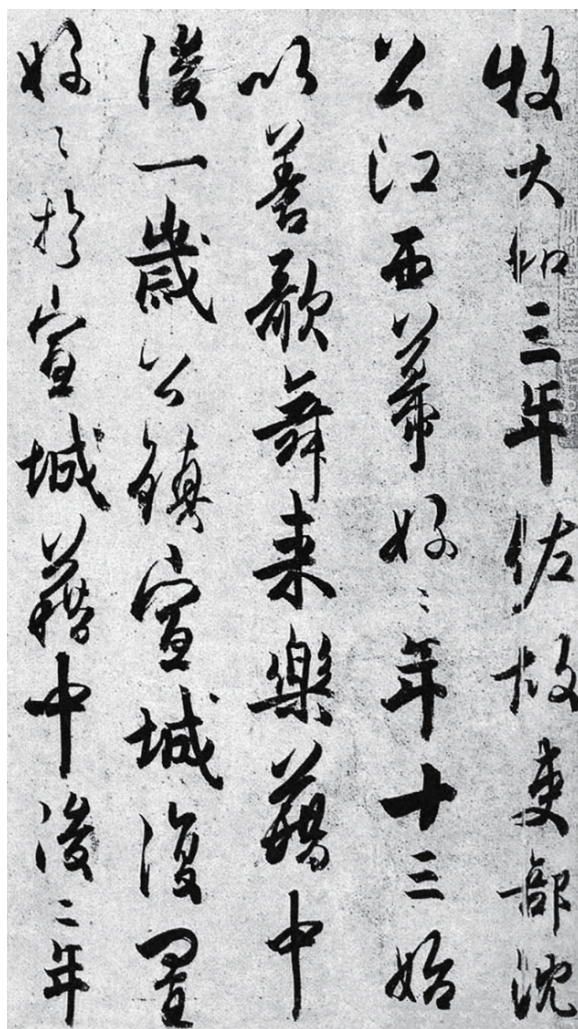 牧大和三年佐故吏部沈
公江西幕好〻年十三始
以善歌舞来樂藉中
後一歲公鎮宣城復置
好〻於宣城藉中後二年